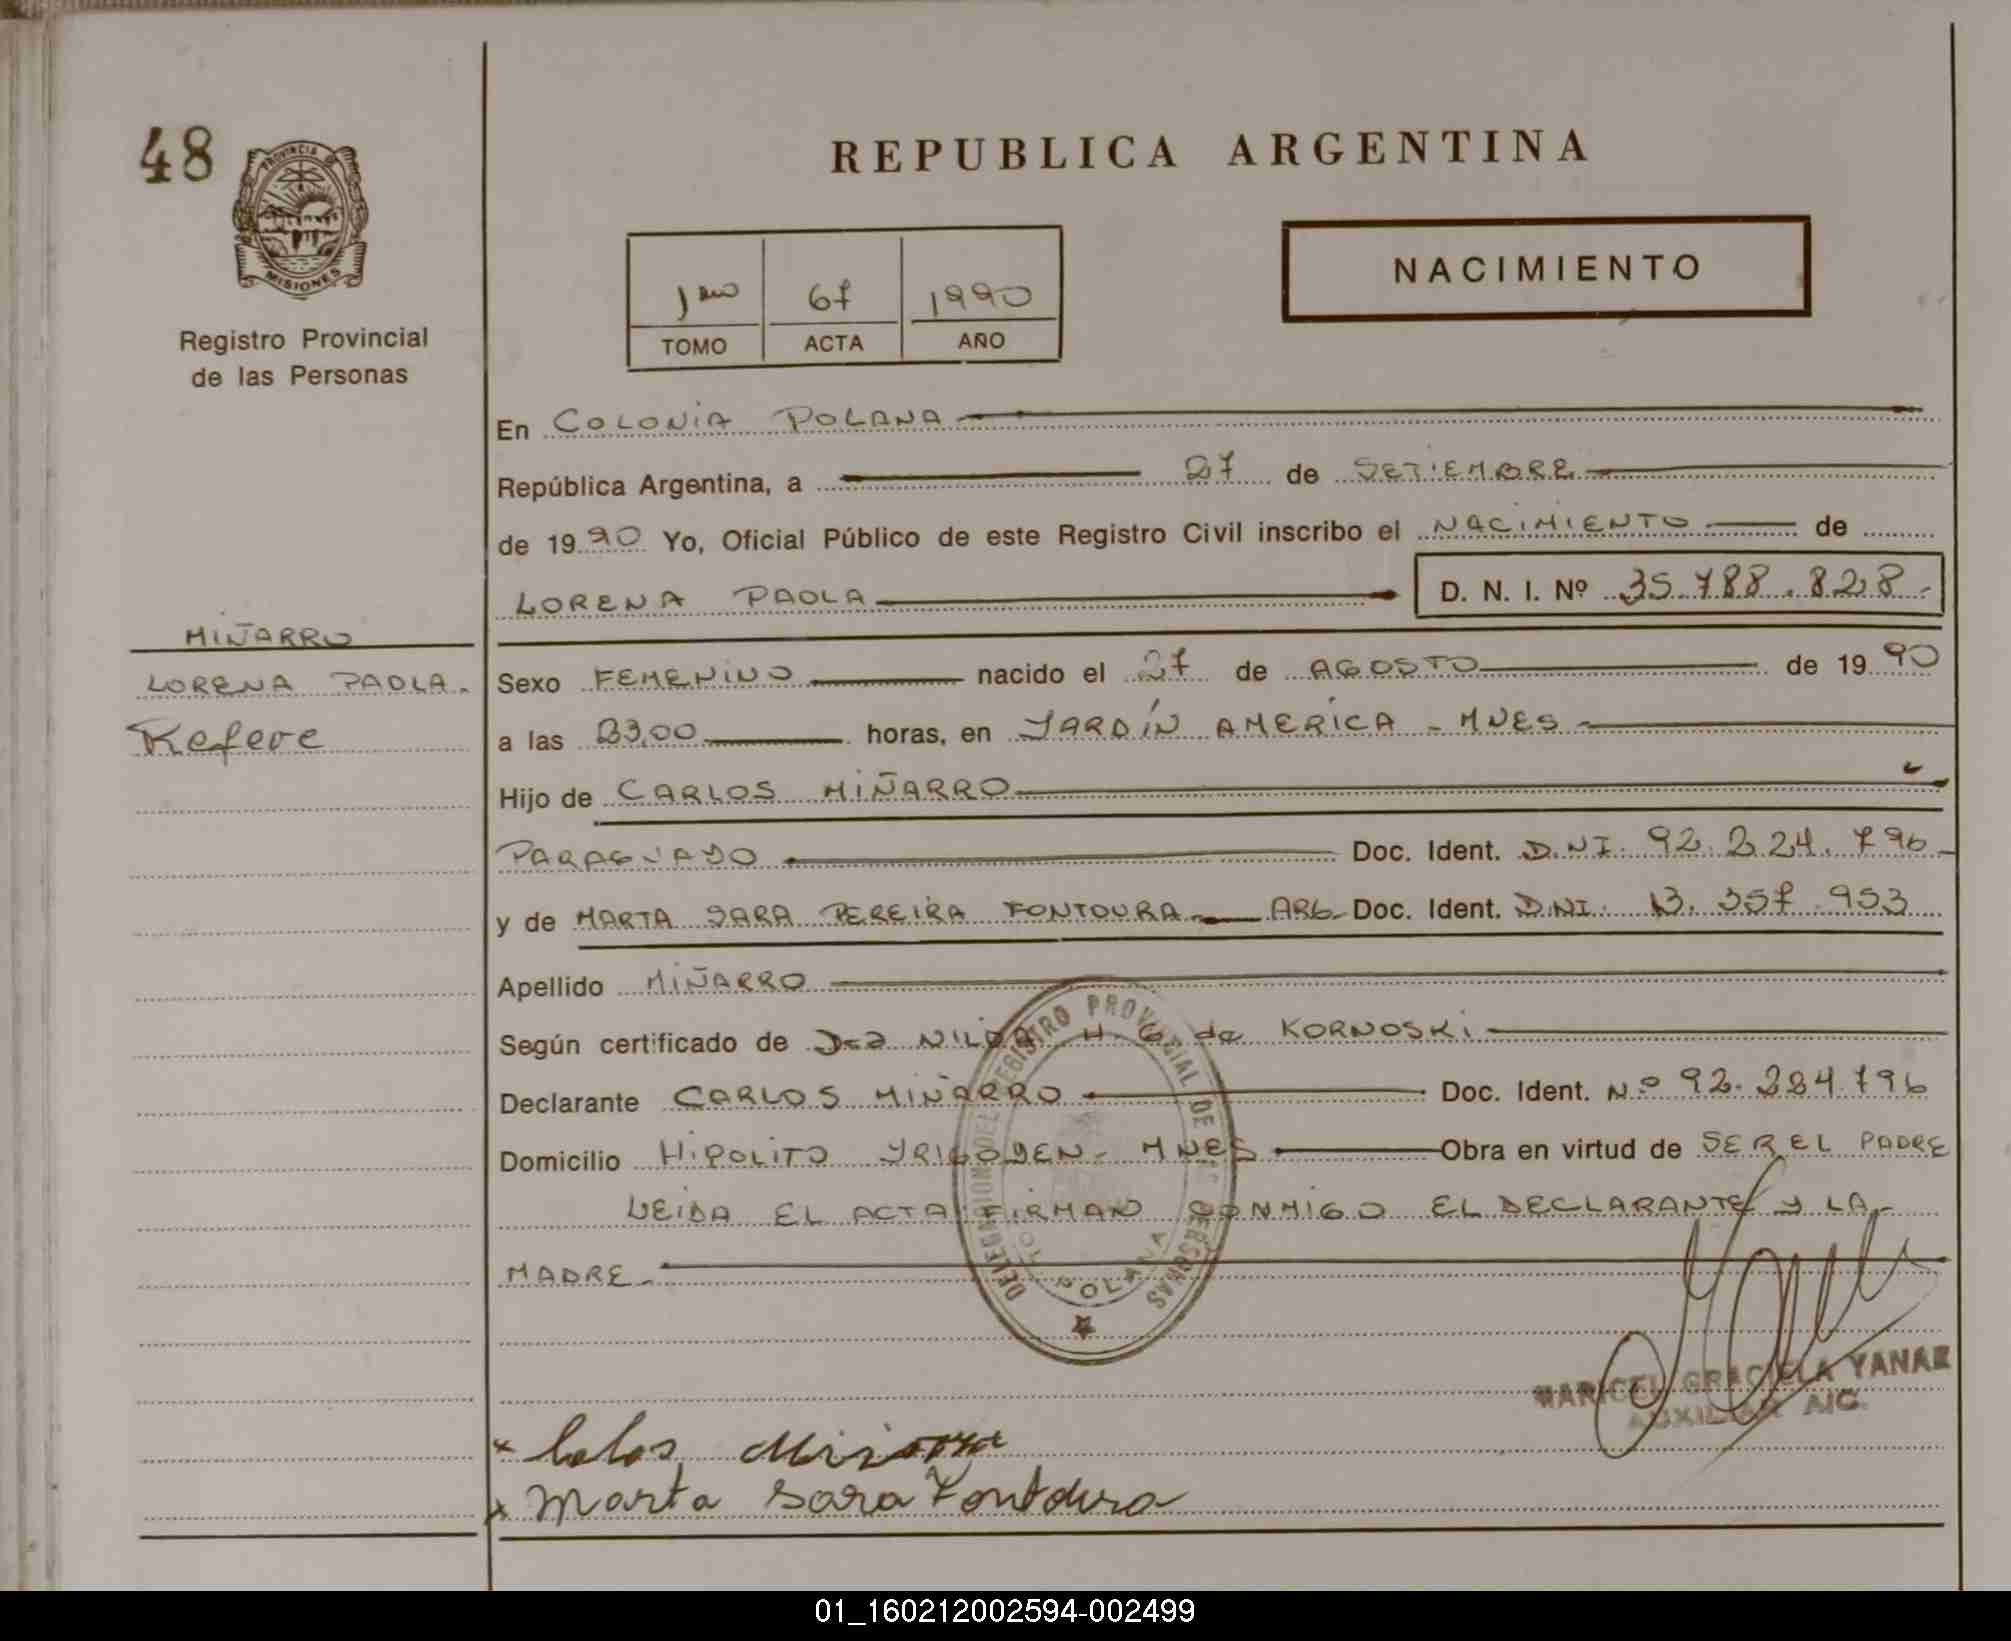 48
PROVINCIA DE
MISIONES
Registro Provincial
de las Personas
REPUBLICA ARGENTINA
NACIMIENTO
1mo 67 1990
TOMO ACTA AÑO
En COLONIA POLANA
República Argentina, a 27 de SETIEMBRE
de 1990 Yo, Oficial Público de este Registro Civil inscribo el NACIMIENTO de
LORENA PAOLA D. N. I. Nº 35.788.828.-
MIÑARRO
LORENA PAOLA.
Sexo FEMENINO nacido el 27 de AGOSTO de 1990
a las 23,00 horas, en JARDÍN AMERICA - MNES -
Hijo de CARLOS MIÑARRO
PARAGUAYO Doc. Ident. D.NI. 92.224.796-
y de MARTA SARA PEREIRA FONTOURA ARG- Doc. Ident. D.NI. 13.357.953
Apellido MIÑARRO
Según certificado de NILDA H. G de KORNOSKI
Declarante CARLOS MIÑARRO Doc. Ident. Nº 92.224.796
Domicilio HIPOLITO YRIGOYEN - MNES Obra en virtud de SER EL PADRE
LEIDA EL ACTA FIRMAN CONMIGO EL DECLARANTE Y LA
MADRE
DELEGACION DEL REGISTRO PROVINCIAL DE PERSONAS
POLANA
MARICEL GRACIELA YANAE
AUXILIAR A/C.
Marta Sara Fontoura
01_160212002594-002499